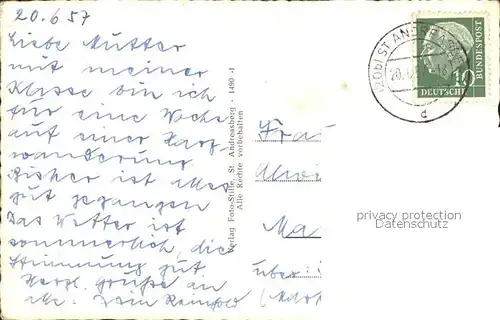 20.6.57
Liebe Mutter
mit meiner
Klasse bin ich
für eine Woche
auf einer Harz-
wanderung
Bisher ist alles
gut gegangen
Das Wetter ist
sommerlich, die
Stimmung gut.
Herzl. Grüße an
Dein Reinhold
Verlag Foto-Stille, St. Andreasberg - 1490 -I
Alle Rechte vorbehalten
(20b) ST. ANDREASBERG
20.6
d
10
DEUTSCHE
BUNDESPOST
Frau
Ma
über
privacy protection
Datenschutz